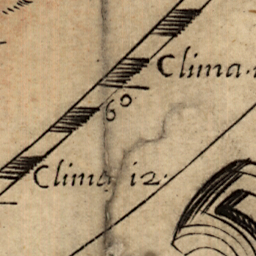 Clima.
60
Clima 12.